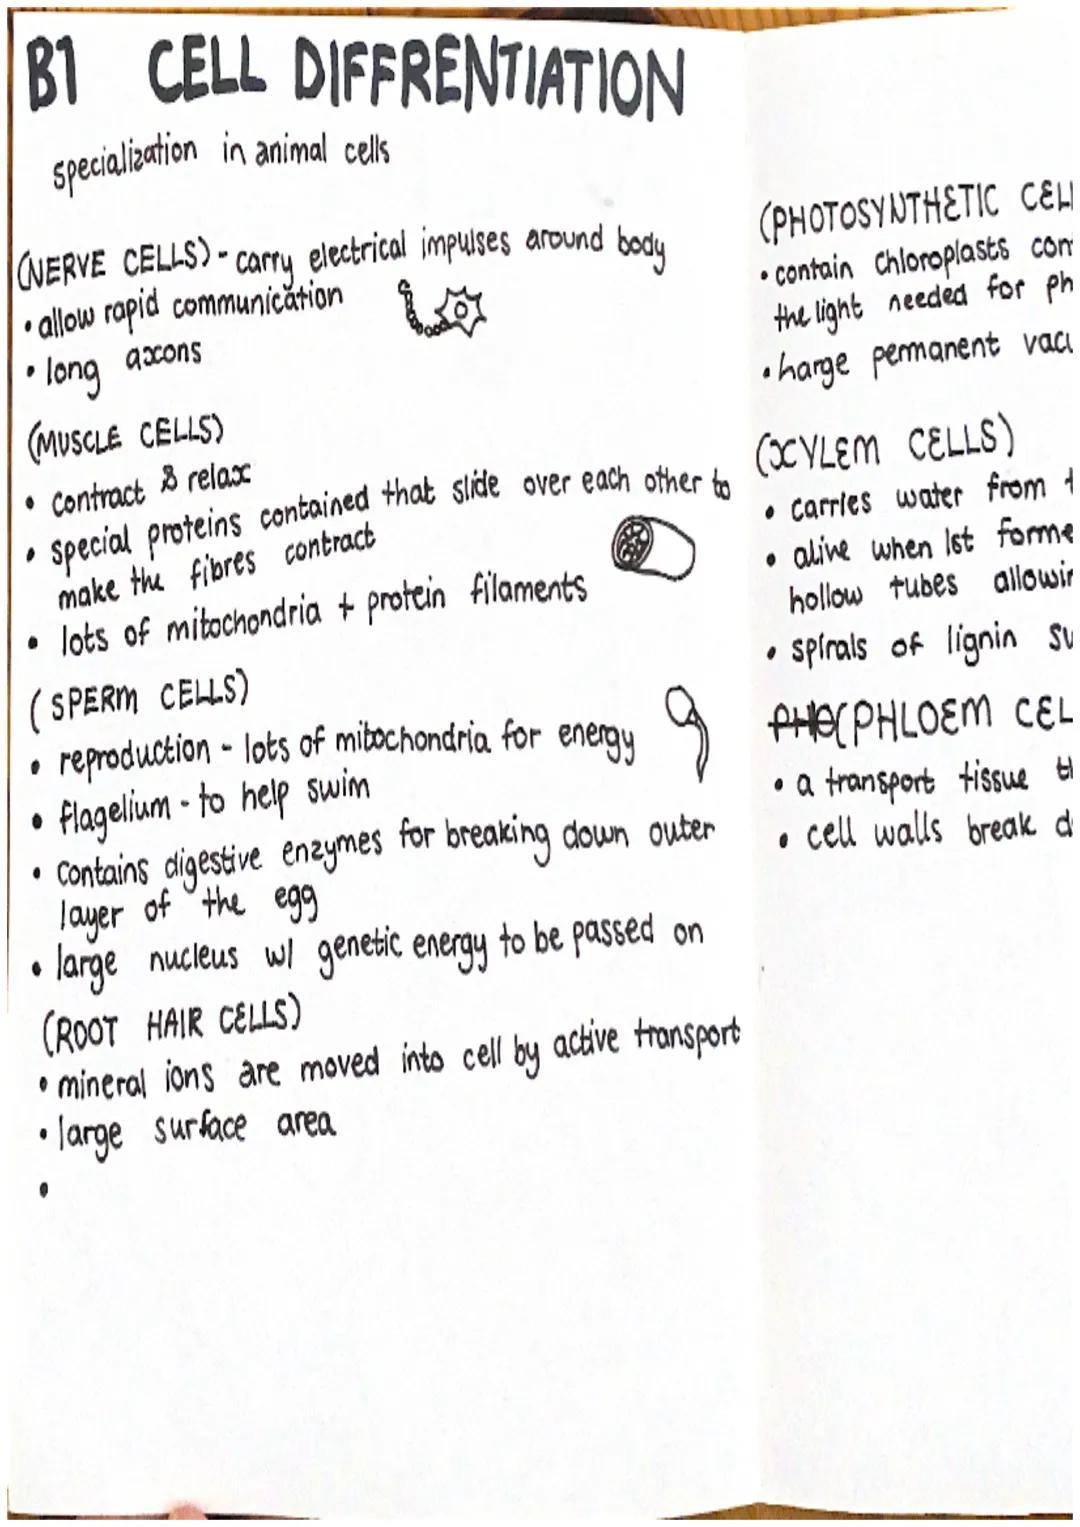 B1 CELL DIFFRENTIATION
specialization in animal cells
(NERVE CELLS) - carry electrical impulses around body
• allow rapid communication
• long axons
(MUSCLE CELLS)
• contract & relax
• special proteins contained that slide over each other to
make the fibres contract
• lots of mitochondria + protein filaments
(SPERM CELLS)
• reproduction - lots of mitochondria for energy
• flagelium - to help swim
• contains digestive enzymes for breaking down outer
layer of the egg
• large nucleus w/ genetic energy to be passed on
(ROOT HAIR CELLS)
• mineral ions are moved into cell by active transport
• large surface area
•
(PHOTOSYNTHETIC CELL
• contain chloroplasts con
the light needed for ph
• harge permanent vacu
(XYLEM CELLS)
• carries water from t
• alive when 1st forme
hollow tubes allowin
• spirals of lignin su
PHO(PHLOEM CEL
• a transport tissue th
• cell walls break d